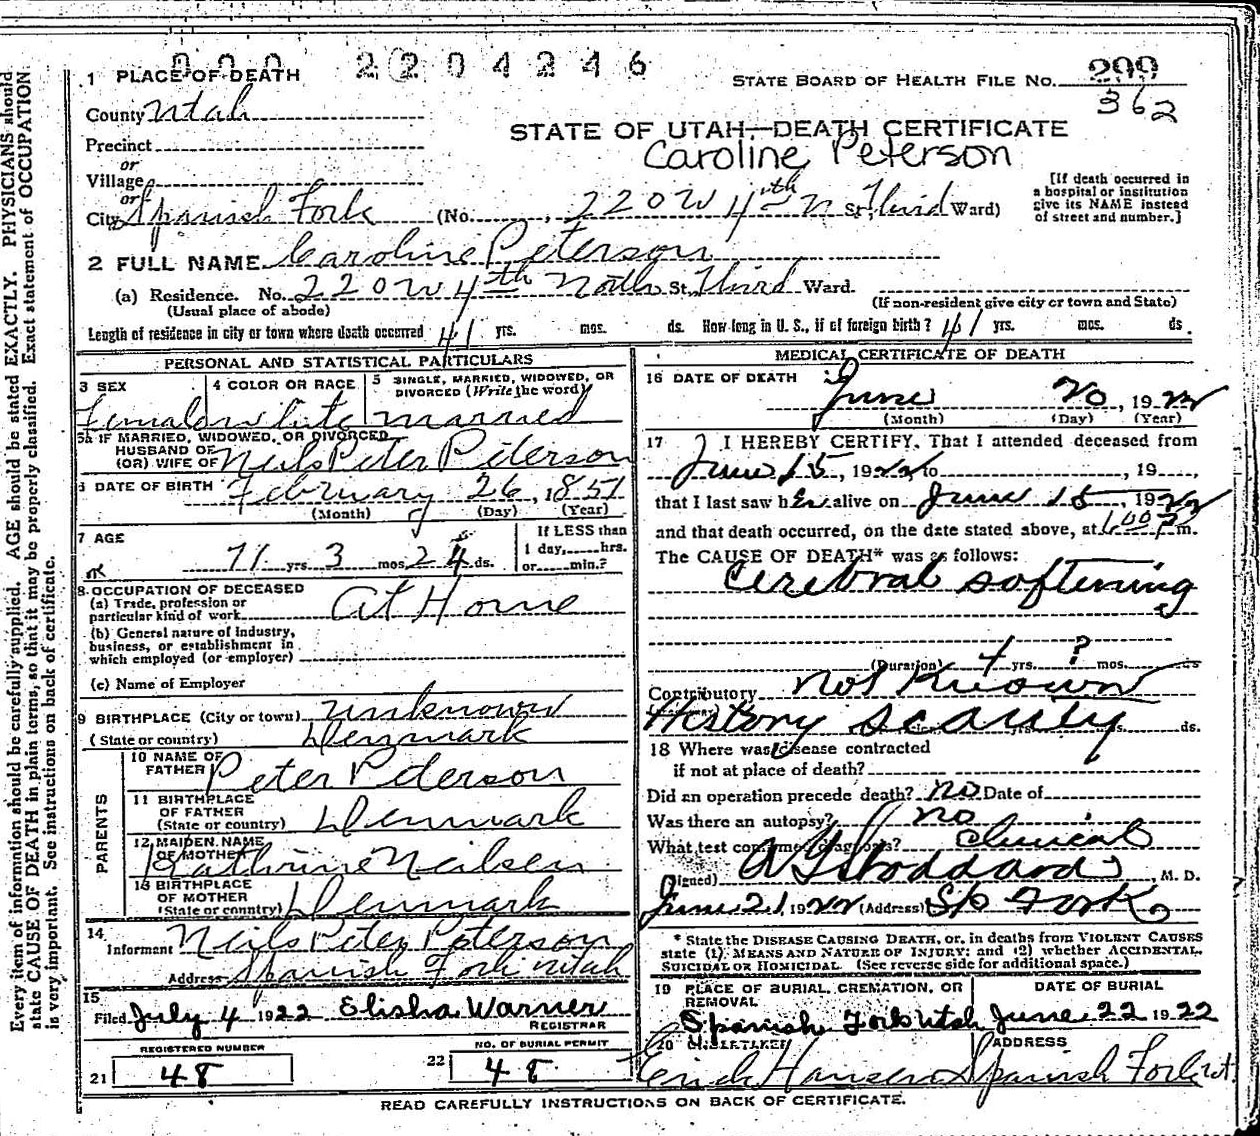 000 2204246
1 PLACE OF DEATH
STATE BOARD OF HEALTH FILE No. 299
362
County Utah
STATE OF UTAH—DEATH CERTIFICATE
Caroline Peterson
Precinct
or
Village
or
City Spanish Fork (No. 220 W 4th N St. Third Ward)
[If death occurred in a hospital or institution give its NAME instead of street and number.]
2 FULL NAME Caroline Peterson
(a) Residence. No. 220 W 4th North St. Third Ward.
(Usual place of abode)
(If non-resident give city or town and State)
Length of residence in city or town where death occurred 41 yrs. mos. ds. How long in U. S., if of foreign birth? 41 yrs. mos. ds.
PERSONAL AND STATISTICAL PARTICULARS
3 SEX
Female
4 COLOR OR RACE
white
5 SINGLE, MARRIED, WIDOWED, OR DIVORCED (Write the word)
married
5a IF MARRIED, WIDOWED, OR DIVORCED
HUSBAND OF
(OR) WIFE OF Neils Peter Peterson
6 DATE OF BIRTH February 26, 1851
(Month) (Day) (Year)
7 AGE
71 yrs 3 mos. 24 ds.
If LESS than
1 day,......hrs.
or......min.?
8 OCCUPATION OF DECEASED
(a) Trade, profession or
particular kind of work At Home
(b) General nature of industry,
business, or establishment in
which employed (or employer)
(c) Name of Employer
9 BIRTHPLACE (City or town) unknown
(State or country) Denmark
PARENTS
10 NAME OF
FATHER Peter Peterson
11 BIRTHPLACE
OF FATHER
(State or country) Denmark
12 MAIDEN NAME
OF MOTHER Kathrine Neilsen
13 BIRTHPLACE
OF MOTHER
(State or country) Denmark
14
Informant Neils Peter Peterson
Address Spanish Fork Utah
15
Filed July 4 1922 Elisha Warner
REGISTRAR
REGISTERED NUMBER
21 48
NO. OF BURIAL PERMIT
22 48
MEDICAL CERTIFICATE OF DEATH
16 DATE OF DEATH
June 20, 1922
(Month) (Day) (Year)
17 I HEREBY CERTIFY, That I attended deceased from
June 15, 1922, to , 19
that I last saw her alive on June 15 1922
and that death occurred, on the date stated above, at 6:00 P m.
The CAUSE OF DEATH* was as follows:
Cerebral softening
(Duration) yrs. ? mos. ds
Contributory not known
History scanty
yrs. ds.
18 Where was disease contracted
if not at place of death?
Did an operation precede death? no Date of
Was there an autopsy? no
What test confirmed diagnosis? Clinical
(Signed) A Stoddard, M. D.
June 21 1922 (Address) Sp Fork
* State the DISEASE CAUSING DEATH, or, in deaths from VIOLENT CAUSES
state (1) MEANS AND NATURE OF INJURY; and (2) whether ACCIDENTAL,
SUICIDAL OR HOMICIDAL. (See reverse side for additional space.)
19 PLACE OF BURIAL, CREMATION, OR
REMOVAL
Spanish Fork Utah
DATE OF BURIAL
June 22 1922
20 UNDERTAKER
Erick Hansen
ADDRESS
Spanish Fork Ut.
READ CAREFULLY INSTRUCTIONS ON BACK OF CERTIFICATE.
Every item of information should be carefully supplied. AGE should be stated EXACTLY. PHYSICIANS should
state CAUSE OF DEATH in plain terms, so that it may be properly classified. Exact statement of OCCUPATION
is very important. See instructions on back of certificate.